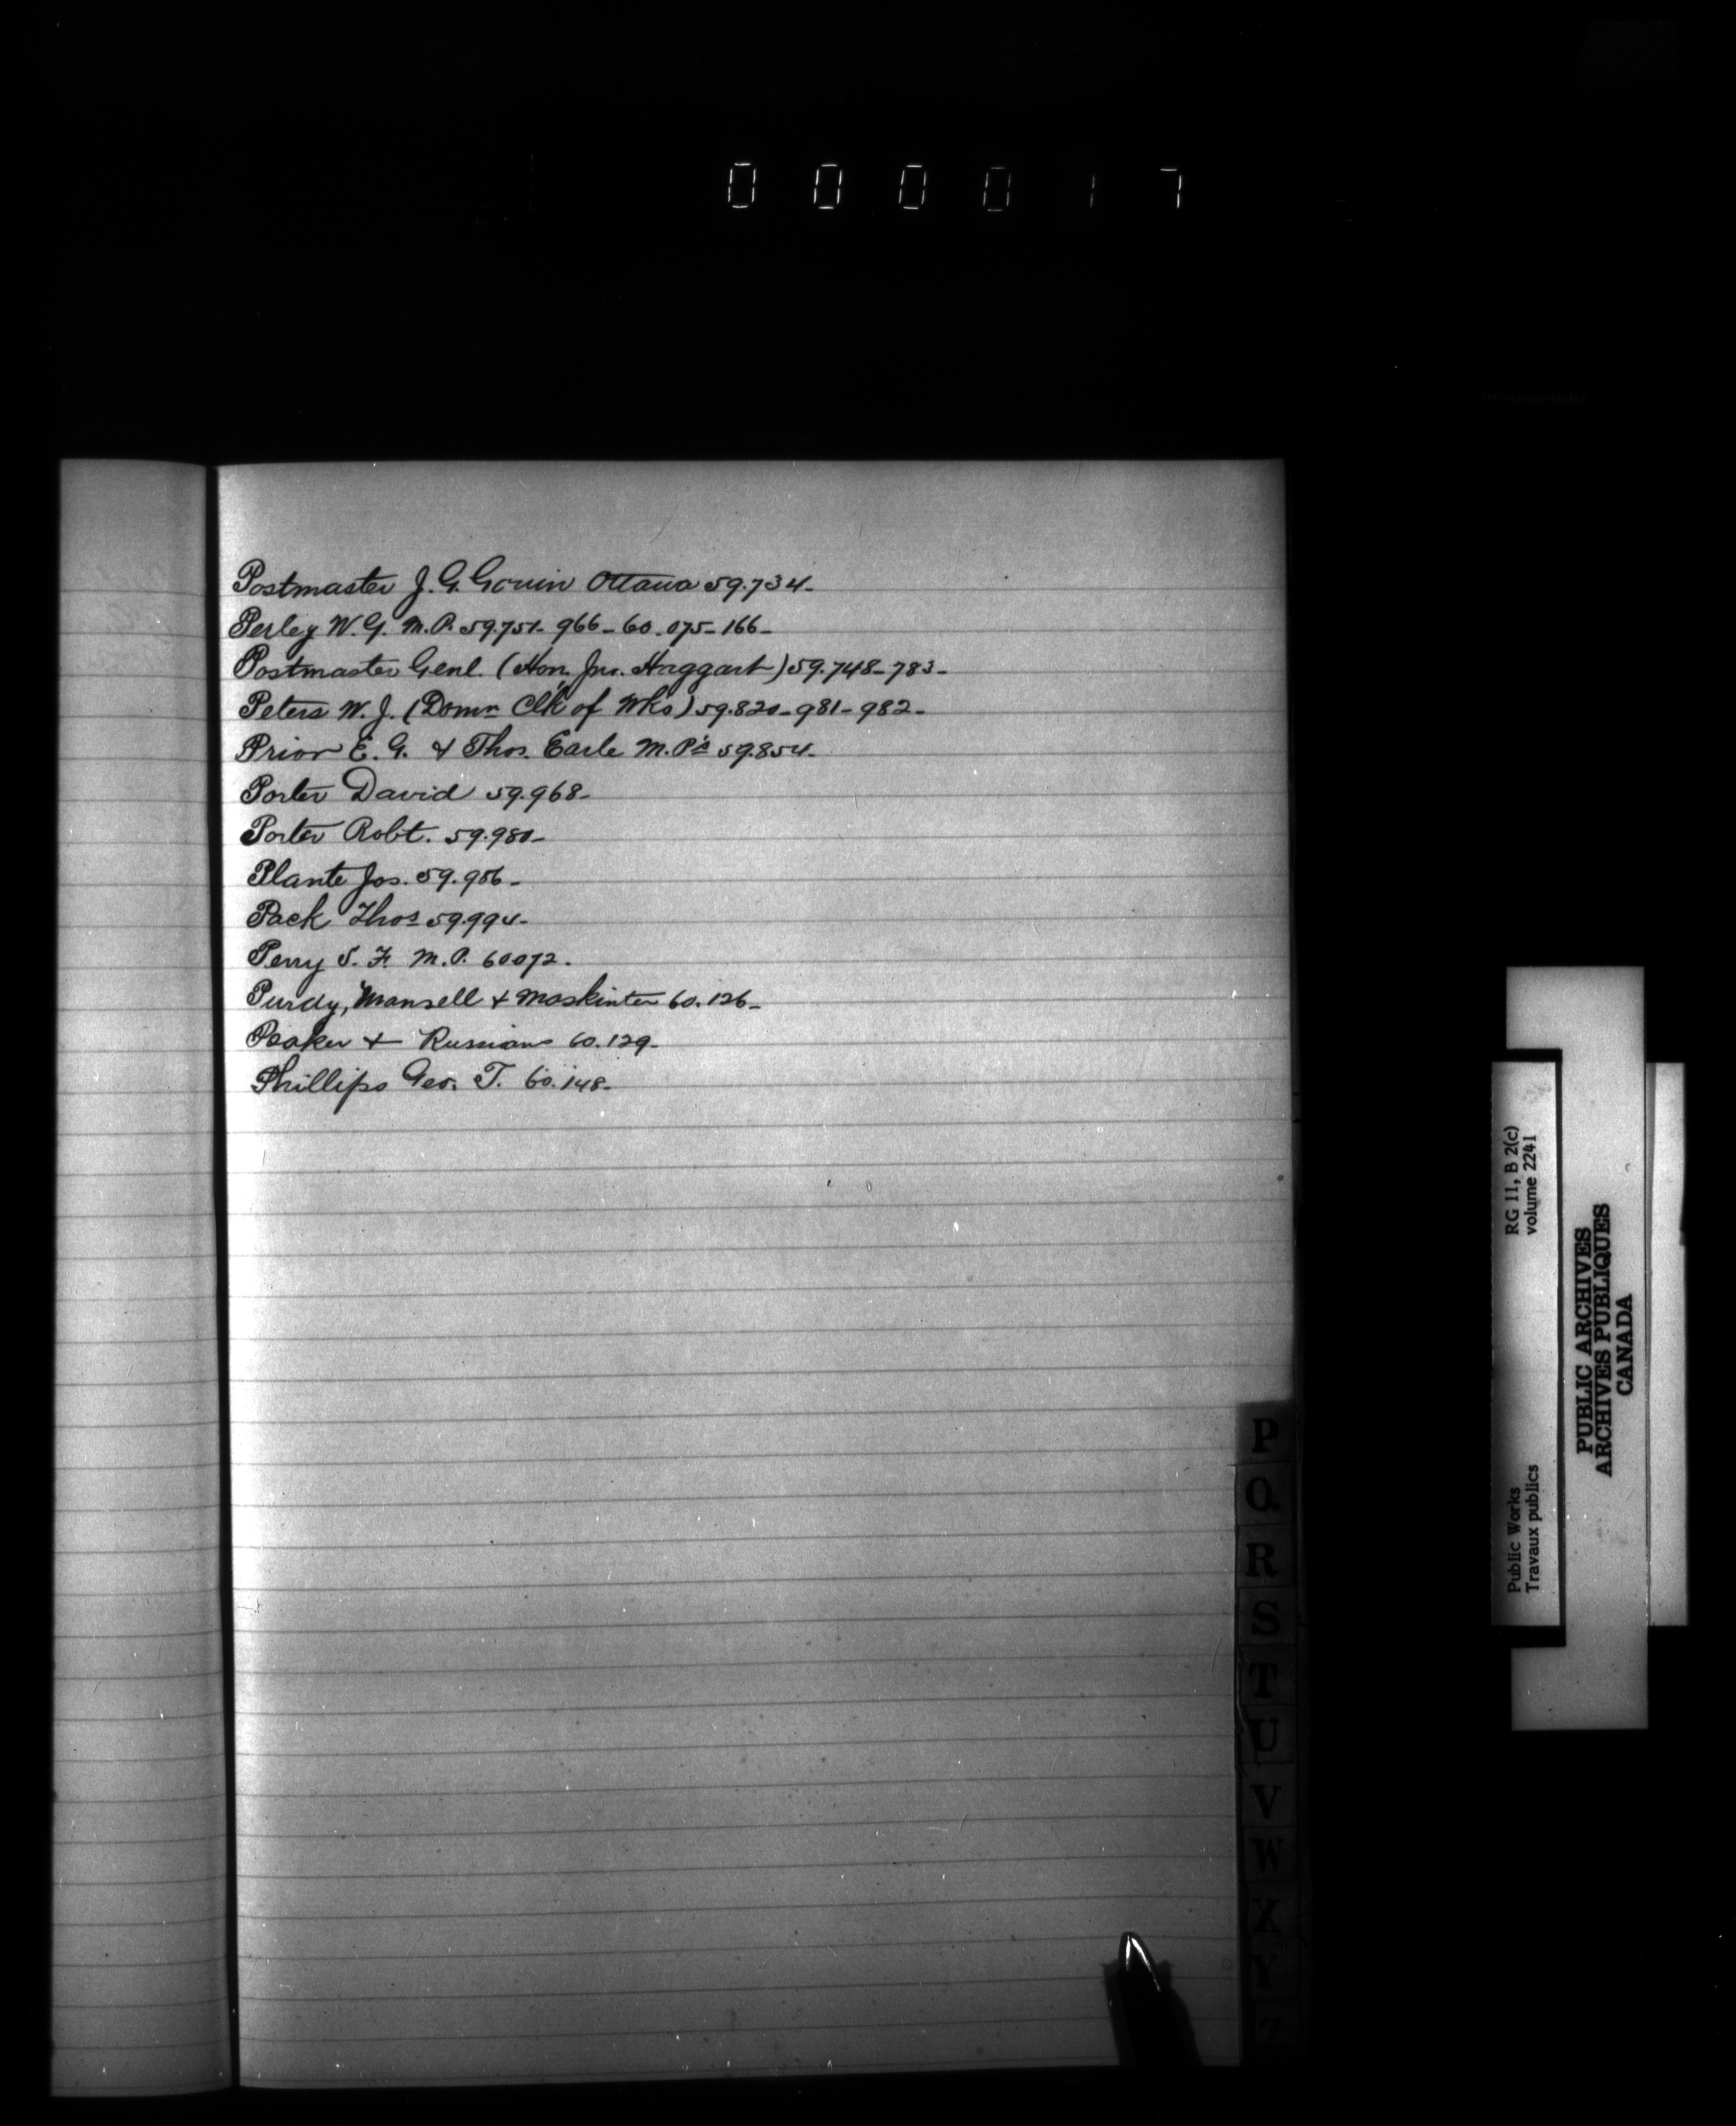 000017
Postmaster J. G. Gouin Ottawa 59.734-
Perley W. G. M.P. 59.751- 966- 60.075- 166-
Postmaster Genl. (Hon. Jno. Haggart) 59.748- 783-
Peters W. J. (Domn Clk of Wks) 59.820- 981- 982-
Prior E. G. & Thos. Earle M.P's 59.854-
Porter David 59.968-
Porter Robt. 59.980-
Plante Jos. 59.956-
Pack Thos 59.994-
Perry S. F. M.P. 60072.
Purdy, Mansell & Maskinter 60.126-
Peaker & Russians 60.129-
Phillips Geo. T. 60.148-
P
Q.
R
S
T
U
V
W
X
Y
Z
RG 11, B 2(c)
volume 2241
Public Works
Travaux publics
PUBLIC ARCHIVES
ARCHIVES PUBLIQUES
CANADA